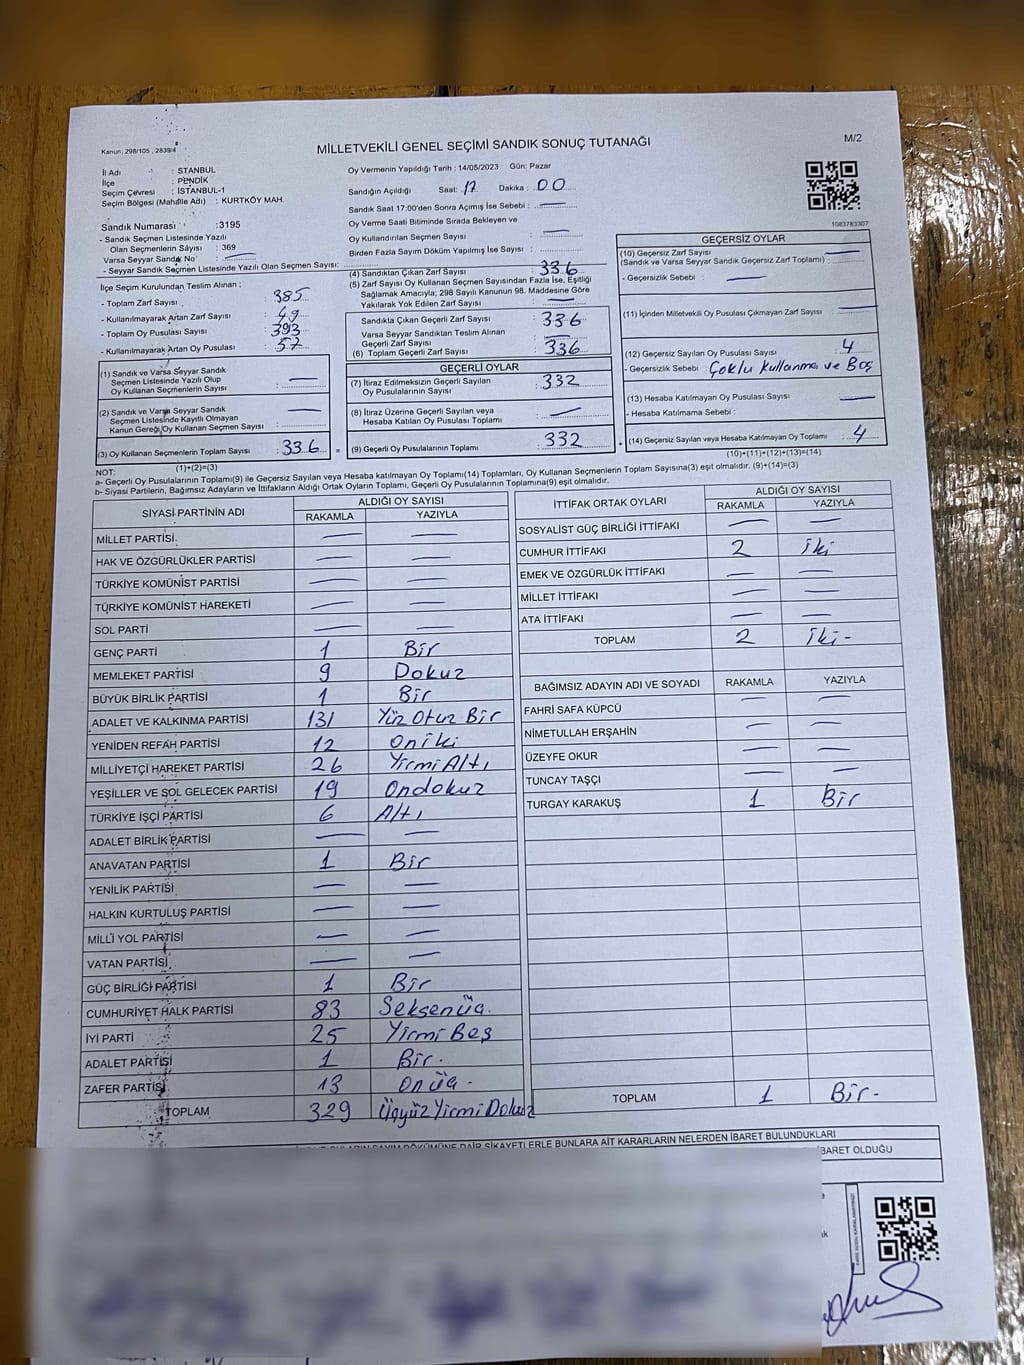 MİLLETVEKİLİ GENEL SEÇİMİ SANDIK SONUÇ TUTANAĞI
M/2
Kanun: 298/105 , 2839/4
İl Adı : STANBUL
İlçe : PENDİK
Seçim Çevresi : İSTANBUL-1
Seçim Bölgesi (Mahalle Adı) : KURTKÖY MAH.
Oy Vermenin Yapıldığı Tarih : 14/05/2023 Gün: Pazar
Sandığın Açıldığı Saat: 17 Dakika : 00
Sandık Saat 17:00'den Sonra Açımış İse Sebebi : —
Oy Verme Saati Bitiminde Sırada Bekleyen ve
Oy Kullandırılan Seçmen Sayısı —
Birden Fazla Sayım Döküm Yapılmış İse Sayısı :
1083783307
Sandık Numarası :3195
- Sandık Seçmen Listesinde Yazılı
Olan Seçmenlerin Sayısı : 369
Varsa Seyyar Sandık No : —
- Seyyar Sandık Seçmen Listesinde Yazılı Olan Seçmen Sayısı:
İlçe Seçim Kurulundan Teslim Alınan ;
- Toplam Zarf Sayısı : 385
- Kullanılmayarak Artan Zarf Sayısı : 49
- Toplam Oy Pusulası Sayısı : 393
- Kullanılmayarak Artan Oy Pusulası : 57
(1) Sandık ve Varsa Seyyar Sandık
Seçmen Listesinde Yazılı Olup
Oy Kullanan Seçmenlerin Sayısı : —
(2) Sandık ve Varsa Seyyar Sandık
Seçmen Listesinde Kayıtlı Olmayan
Kanun Gereği Oy Kullanan Seçmen Sayısı : —
(3) Oy Kullanan Seçmenlerin Toplam Sayısı : 336
(1)+(2)=(3)
(4) Sandıktan Çıkan Zarf Sayısı 336
(5) Zarf Sayısı Oy Kullanan Seçmen Sayısından Fazla İse, Eşitliği
Sağlamak Amacıyla; 298 Sayılı Kanunun 98. Maddesine Göre
Yakılarak Yok Edilen Zarf Sayısı : —
Sandıkta Çıkan Geçerli Zarf Sayısı : 336
Varsa Seyyar Sandıktan Teslim Alınan
Geçerli Zarf Sayısı : —
(6) Toplam Geçerli Zarf Sayısı : 336
GEÇERLİ OYLAR
(7) İtiraz Edilmeksizin Geçerli Sayılan
Oy Pusulalarının Sayısı : 332
(8) İtiraz Üzerine Geçerli Sayılan veya
Hesaba Katılan Oy Pusulası Toplamı : —
(9) Geçerli Oy Pusulalarının Toplamı : 332
GEÇERSİZ OYLAR
(10) Geçersiz Zarf Sayısı
(Sandık ve Varsa Seyyar Sandık Geçersiz Zarf Toplamı) : —
- Geçersizlik Sebebi : —
(11) İçinden Milletvekili Oy Pusulası Çıkmayan Zarf Sayısı : —
(12) Geçersiz Sayılan Oy Pusulası Sayısı : 4
- Geçersizlik Sebebi : Çoklu kullanma ve Boş
(13) Hesaba Katılmayan Oy Pusulası Sayısı : —
- Hesaba Katılmama Sebebi :
(14) Geçersiz Sayılan veya Hesaba Katılmayan Oy Toplamı : 4
(10)+(11)+(12)+(13)=(14)
NOT:
a- Geçerli Oy Pusulalarının Toplamı(9) ile Geçersiz Sayılan veya Hesaba katılmayan Oy Toplamı(14) Toplamları, Oy Kullanan Seçmenlerin Toplam Sayısına(3) eşit olmalıdır. (9)+(14)=(3)
b- Siyasi Partilerin, Bağımsız Adayların ve İttifakların Aldığı Ortak Oyların Toplamı, Geçerli Oy Pusulalarının Toplamına(9) eşit olmalıdır.
SİYASİ PARTİNİN ADI ALDIĞI OY SAYISI
RAKAMLA YAZIYLA
MİLLET PARTİSİ — —
HAK VE ÖZGÜRLÜKLER PARTİSİ — —
TÜRKİYE KOMÜNİST PARTİSİ — —
TÜRKİYE KOMÜNİST HAREKETİ — —
SOL PARTİ — —
GENÇ PARTİ 1 Bir
MEMLEKET PARTİSİ 9 Dokuz
BÜYÜK BİRLİK PARTİSİ 1 Bir
ADALET VE KALKINMA PARTİSİ 131 Yüz Otuz Bir
YENİDEN REFAH PARTİSİ 12 Oniki
MİLLİYETÇİ HAREKET PARTİSİ 26 Yirmi Altı
YEŞİLLER VE SOL GELECEK PARTİSİ 19 Ondokuz
TÜRKİYE İŞÇİ PARTİSİ 6 Altı
ADALET BİRLİK PARTİSİ — —
ANAVATAN PARTİSİ 1 Bir
YENİLİK PARTİSİ — —
HALKIN KURTULUŞ PARTİSİ — —
MİLLİ YOL PARTİSİ — —
VATAN PARTİSİ — —
GÜÇ BİRLİĞİ PARTİSİ 1 Bir
CUMHURİYET HALK PARTİSİ 83 Seksenüç.
İYİ PARTİ 25 Yirmi Beş
ADALET PARTİSİ 1 Bir.
ZAFER PARTİSİ 13 Onüç -
TOPLAM 329 Üçyüz Yirmi Dokuz
İTTİFAK ORTAK OYLARI ALDIĞI OY SAYISI
RAKAMLA YAZIYLA
SOSYALİST GÜÇ BİRLİĞİ İTTİFAKI — —
CUMHUR İTTİFAKI 2 iki
EMEK VE ÖZGÜRLÜK İTTİFAKI — —
MİLLET İTTİFAKI — —
ATA İTTİFAKI — —
TOPLAM 2 iki-
BAĞIMSIZ ADAYIN ADI VE SOYADI RAKAMLA YAZIYLA
FAHRİ SAFA KÜPCÜ — —
NİMETULLAH ERŞAHİN — —
ÜZEYFE OKUR — —
TUNCAY TAŞÇI — —
TURGAY KARAKUŞ 1 Bir
TOPLAM 1 Bir-
SAYIM DÖKÜMÜNE DAİR ŞİKAYETLERLE BUNLARA AİT KARARLARIN NELERDEN İBARET BULUNDUKLARI
İBARET OLDUĞU